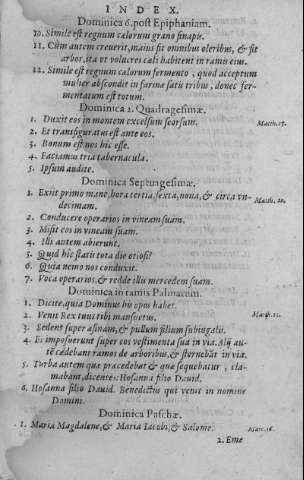 INDEX.
Dominica 6. post Epiphaniam.
10. Simile est regnum cælorum grano sinapis.
11. Cùm autem creuerit, maius fit omnibus oleribus, & fit
arbor, ita vt volucres cæli habitent in ramis eius.
12. Simile est regnum cælorum fermento, quod acceptum
mulier abscondit in farinæ satis tribus, donec fer-
mentatum est totum.
Dominica 2. Quadragesimæ.
1. Duxit eos in montem excelsum seorsum. Matth. 17.
2. Et transfiguratus est ante eos.
3. Bonum est nos hic esse.
4. Faciamus tria tabernacula.
5. Ipsum audite.
Dominica Septuagesimæ.
1. Exijt primo mane, hora tertia, sexta, nona, & circa vn- Matth. 20.
decimam.
2. Conducere operarios in vineam suam.
3. Misit eos in vineam suam.
4. Illi autem abierunt.
5. Quid hic statis tota die otiosi?
6. Quia nemo nos conduxit.
7. Voca operarios, & redde illis mercedem suam.
Dominica in ramis Palmarum.
1. Dicite, quia Dominus his opus habet.
2. Venit Rex tuus tibi mansuetus. Matth. 21.
3. Sedens super asinam, & pullum filium subiugalis.
4. Et imposuerunt super eos vestimenta sua in via. Alij au-
tē cædebant ramos de arboribus, & sternebāt in via.
5. Turba autem quæ præcedebat & quæ sequebatur, cla-
mabant, dicentes: Hosanna filio Dauid.
6. Hosanna filio Dauid. Benedictus qui venit in nomine
Domini.
Dominica Paschæ.
1. Maria Magdalene, & Maria Iacobi, & Salome. Marc. 16.
2. Eme